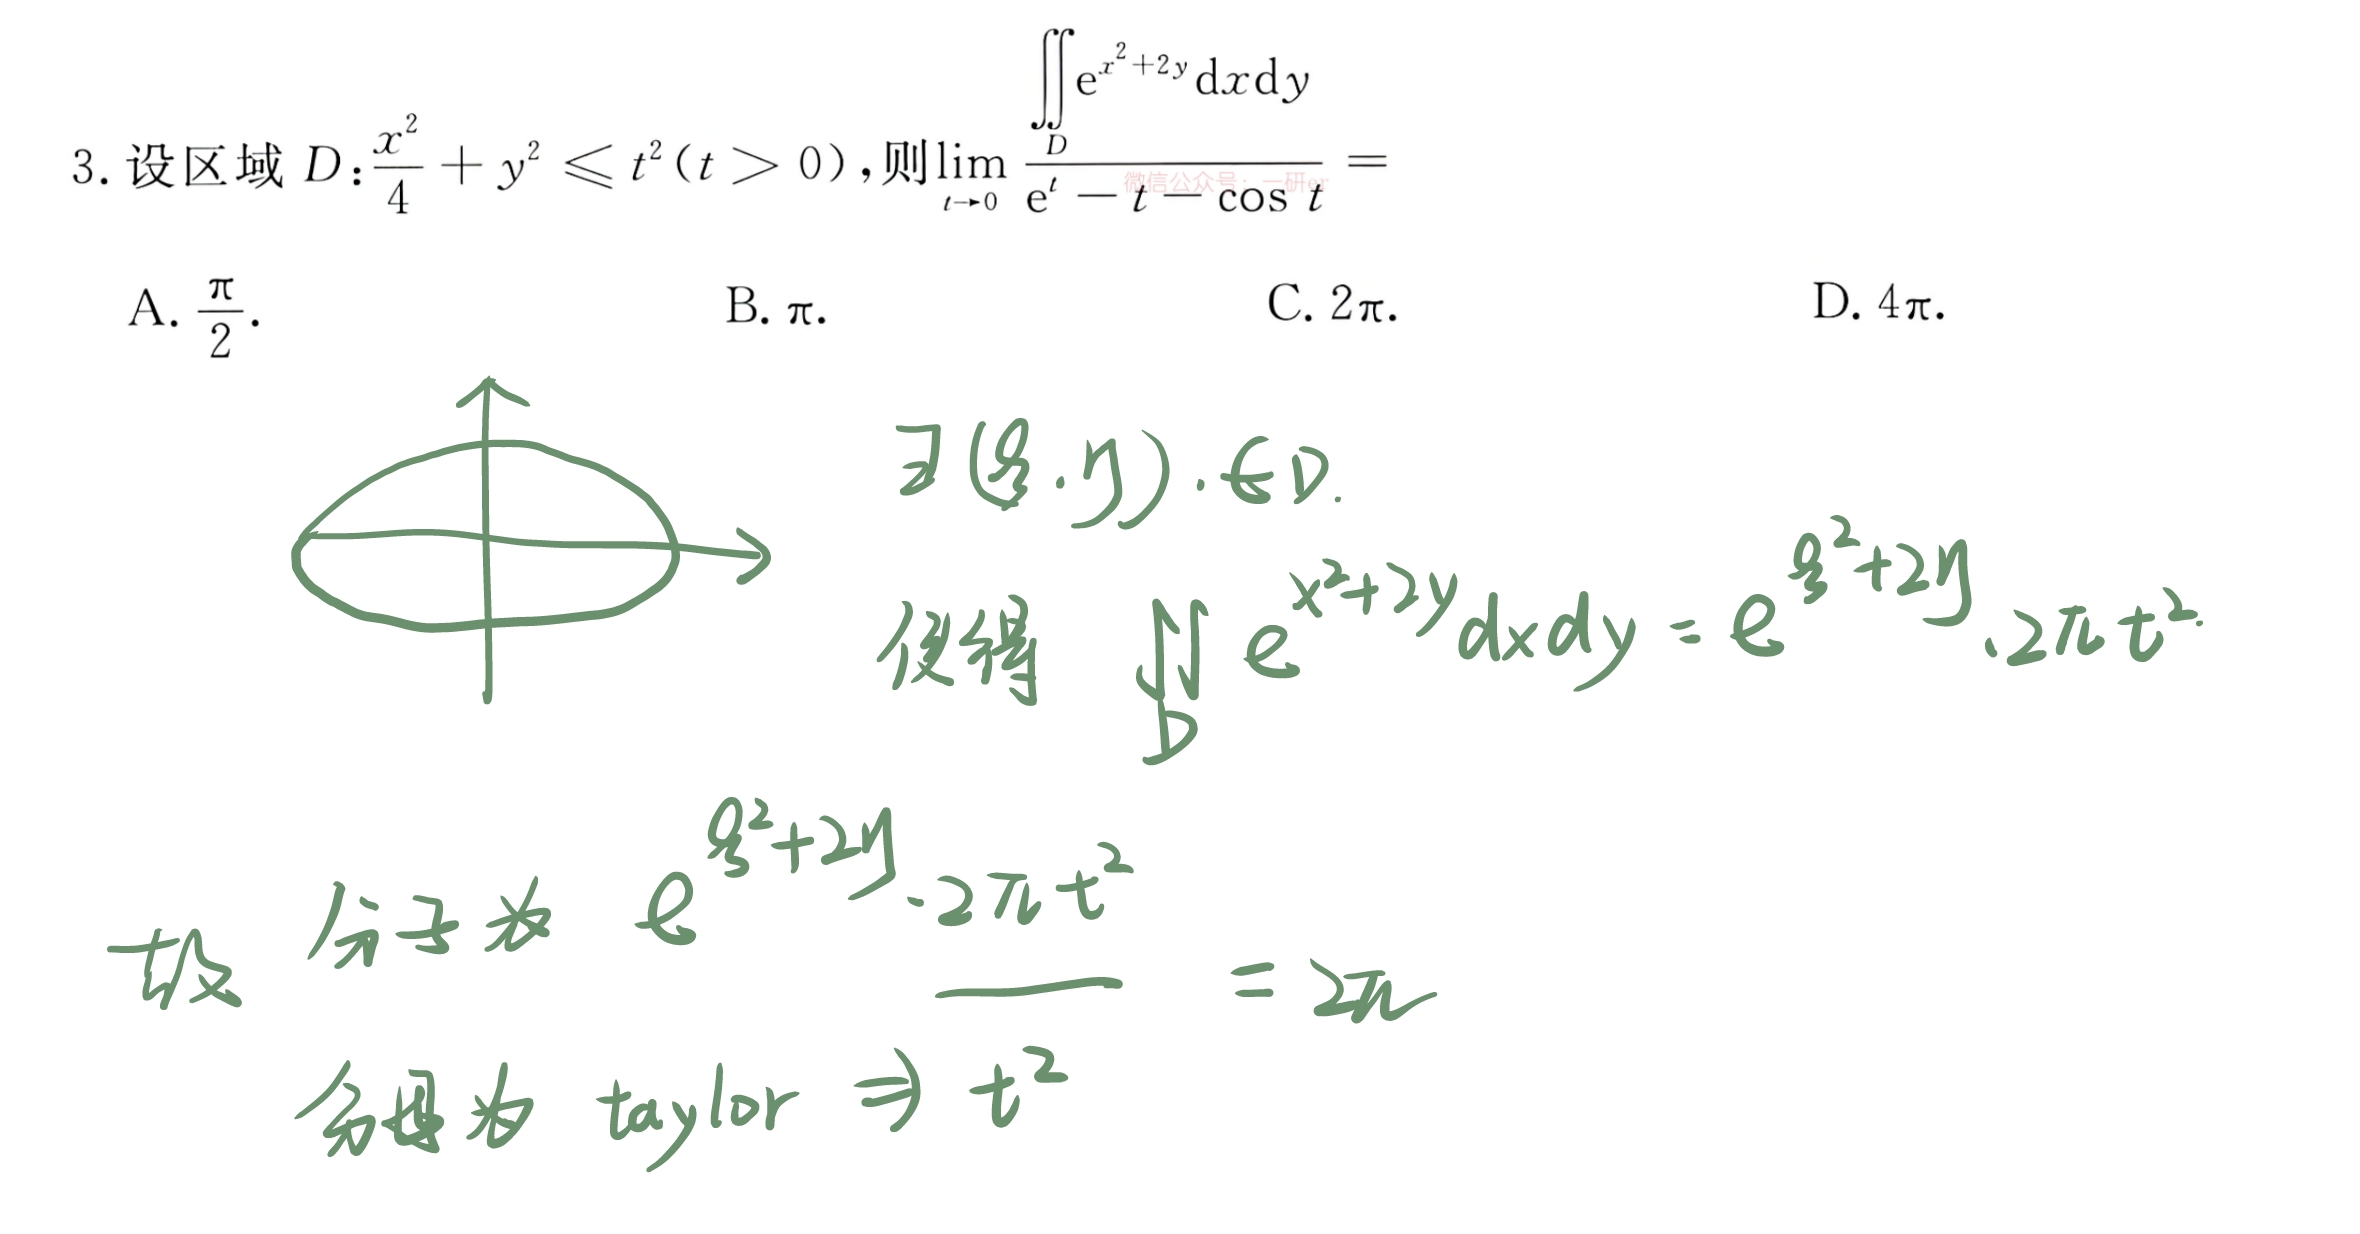 3. 设区域 D: x²/4 + y² ⩽ t² (t > 0), 则 lim_{t→0} ∬_D e^{x²+2y} dxdy / (e^t − t − cos t) =
微信公众号:一研er
A. π/2. B. π. C. 2π. D. 4π.
∃(ξ.η).∈D.
使得 ∬_D e^{x²+2y} dxdy = e^{ξ²+2η}.2πt².
故 分子为 e^{ξ²+2η}.2πt²
= 2π
分母为 taylor ⇒ t²